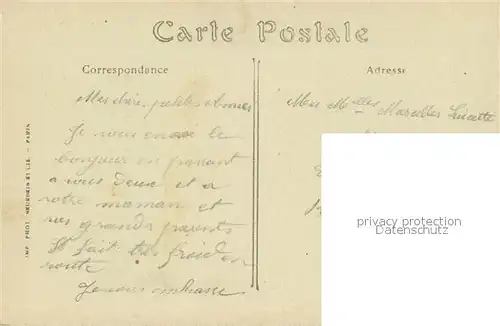 Carte Postale
Correspondance
Adresse
Mes chères petites Amies
Je vous envoie le
bonjour en passant
a vous deux et a
votre maman et
vos grands parents
Il fait très froid en
route
Je vous embrasse
Melles Marcelle Lucette
IMP. PHOT. NEURDEIN ET CIE. — PARIS
privacy protection
Datenschutz